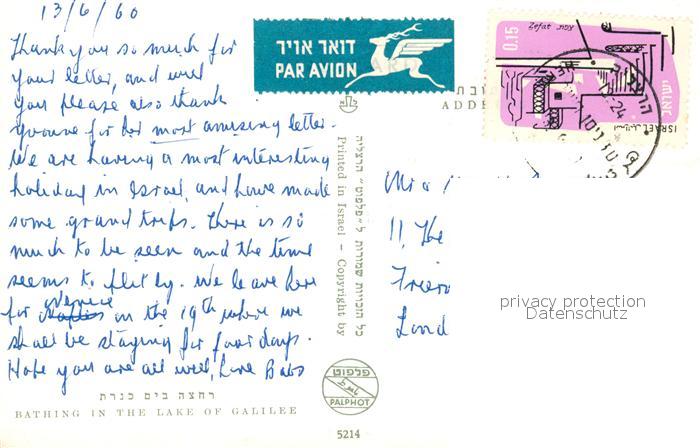 13/6/60
Thank you so much for
your letter, and will
you please also thank
Yvonne for her most amusing letter.
We are having a most interesting
holiday in Israel, and have made
some grand trips. There is so
much to be seen and the time
seems to flit by. We leave here
for Venice on the 19th where we
shall be staying for four days.
Hope you are all well, Love Babs
רחצה בים כנרת
BATHING IN THE LAKE OF GALILEE
דואר אויר
PAR AVION
Zefat צפת
0.15
ישראל
ISRAEL
הרצליה
ADDRE
כל הזכויות שמורות ל״פלפוט״ הרצליה
Printed in Israel - Copyright by
פלפוט
PALPHOT
5214
11, The
Frier
Lond
privacy protection
Datenschutz